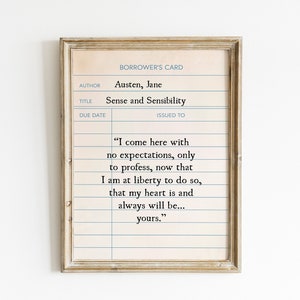 BORROWER'S CARD
AUTHOR Austen, Jane
TITLE Sense and Sensibility
DUE DATE ISSUED TO
“I come here with
no expectations, only
to profess, now that
I am at liberty to do so,
that my heart is and
always will be...
yours.”